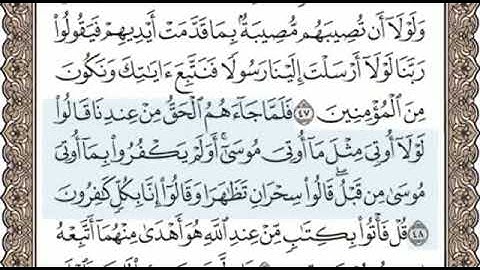 وَلَوْلَآ أَن تُصِيبَهُم مُّصِيبَةٌۢ بِمَا قَدَّمَتْ أَيْدِيهِمْ فَيَقُولُوا۟
رَبَّنَا لَوْلَآ أَرْسَلْتَ إِلَيْنَا رَسُولًا فَنَتَّبِعَ ءَايَٰتِكَ وَنَكُونَ
مِنَ الْمُؤْمِنِينَ ٤٧ فَلَمَّا جَآءَهُمُ الْحَقُّ مِنْ عِندِنَا قَالُوا۟
لَوْلَآ أُوتِىَ مِثْلَ مَآ أُوتِىَ مُوسَىٰٓ ۚ أَوَلَمْ يَكْفُرُوا۟ بِمَآ أُوتِىَ
مُوسَىٰ مِن قَبْلُ ۖ قَالُوا۟ سِحْرَانِ تَظَٰهَرَا وَقَالُوٓا۟ إِنَّا بِكُلٍّ كَٰفِرُونَ
٤٨ قُلْ فَأْتُوا۟ بِكِتَٰبٍ مِّنْ عِندِ اللَّهِ هُوَ أَهْدَىٰ مِنْهُمَآ أَتَّبِعْهُ